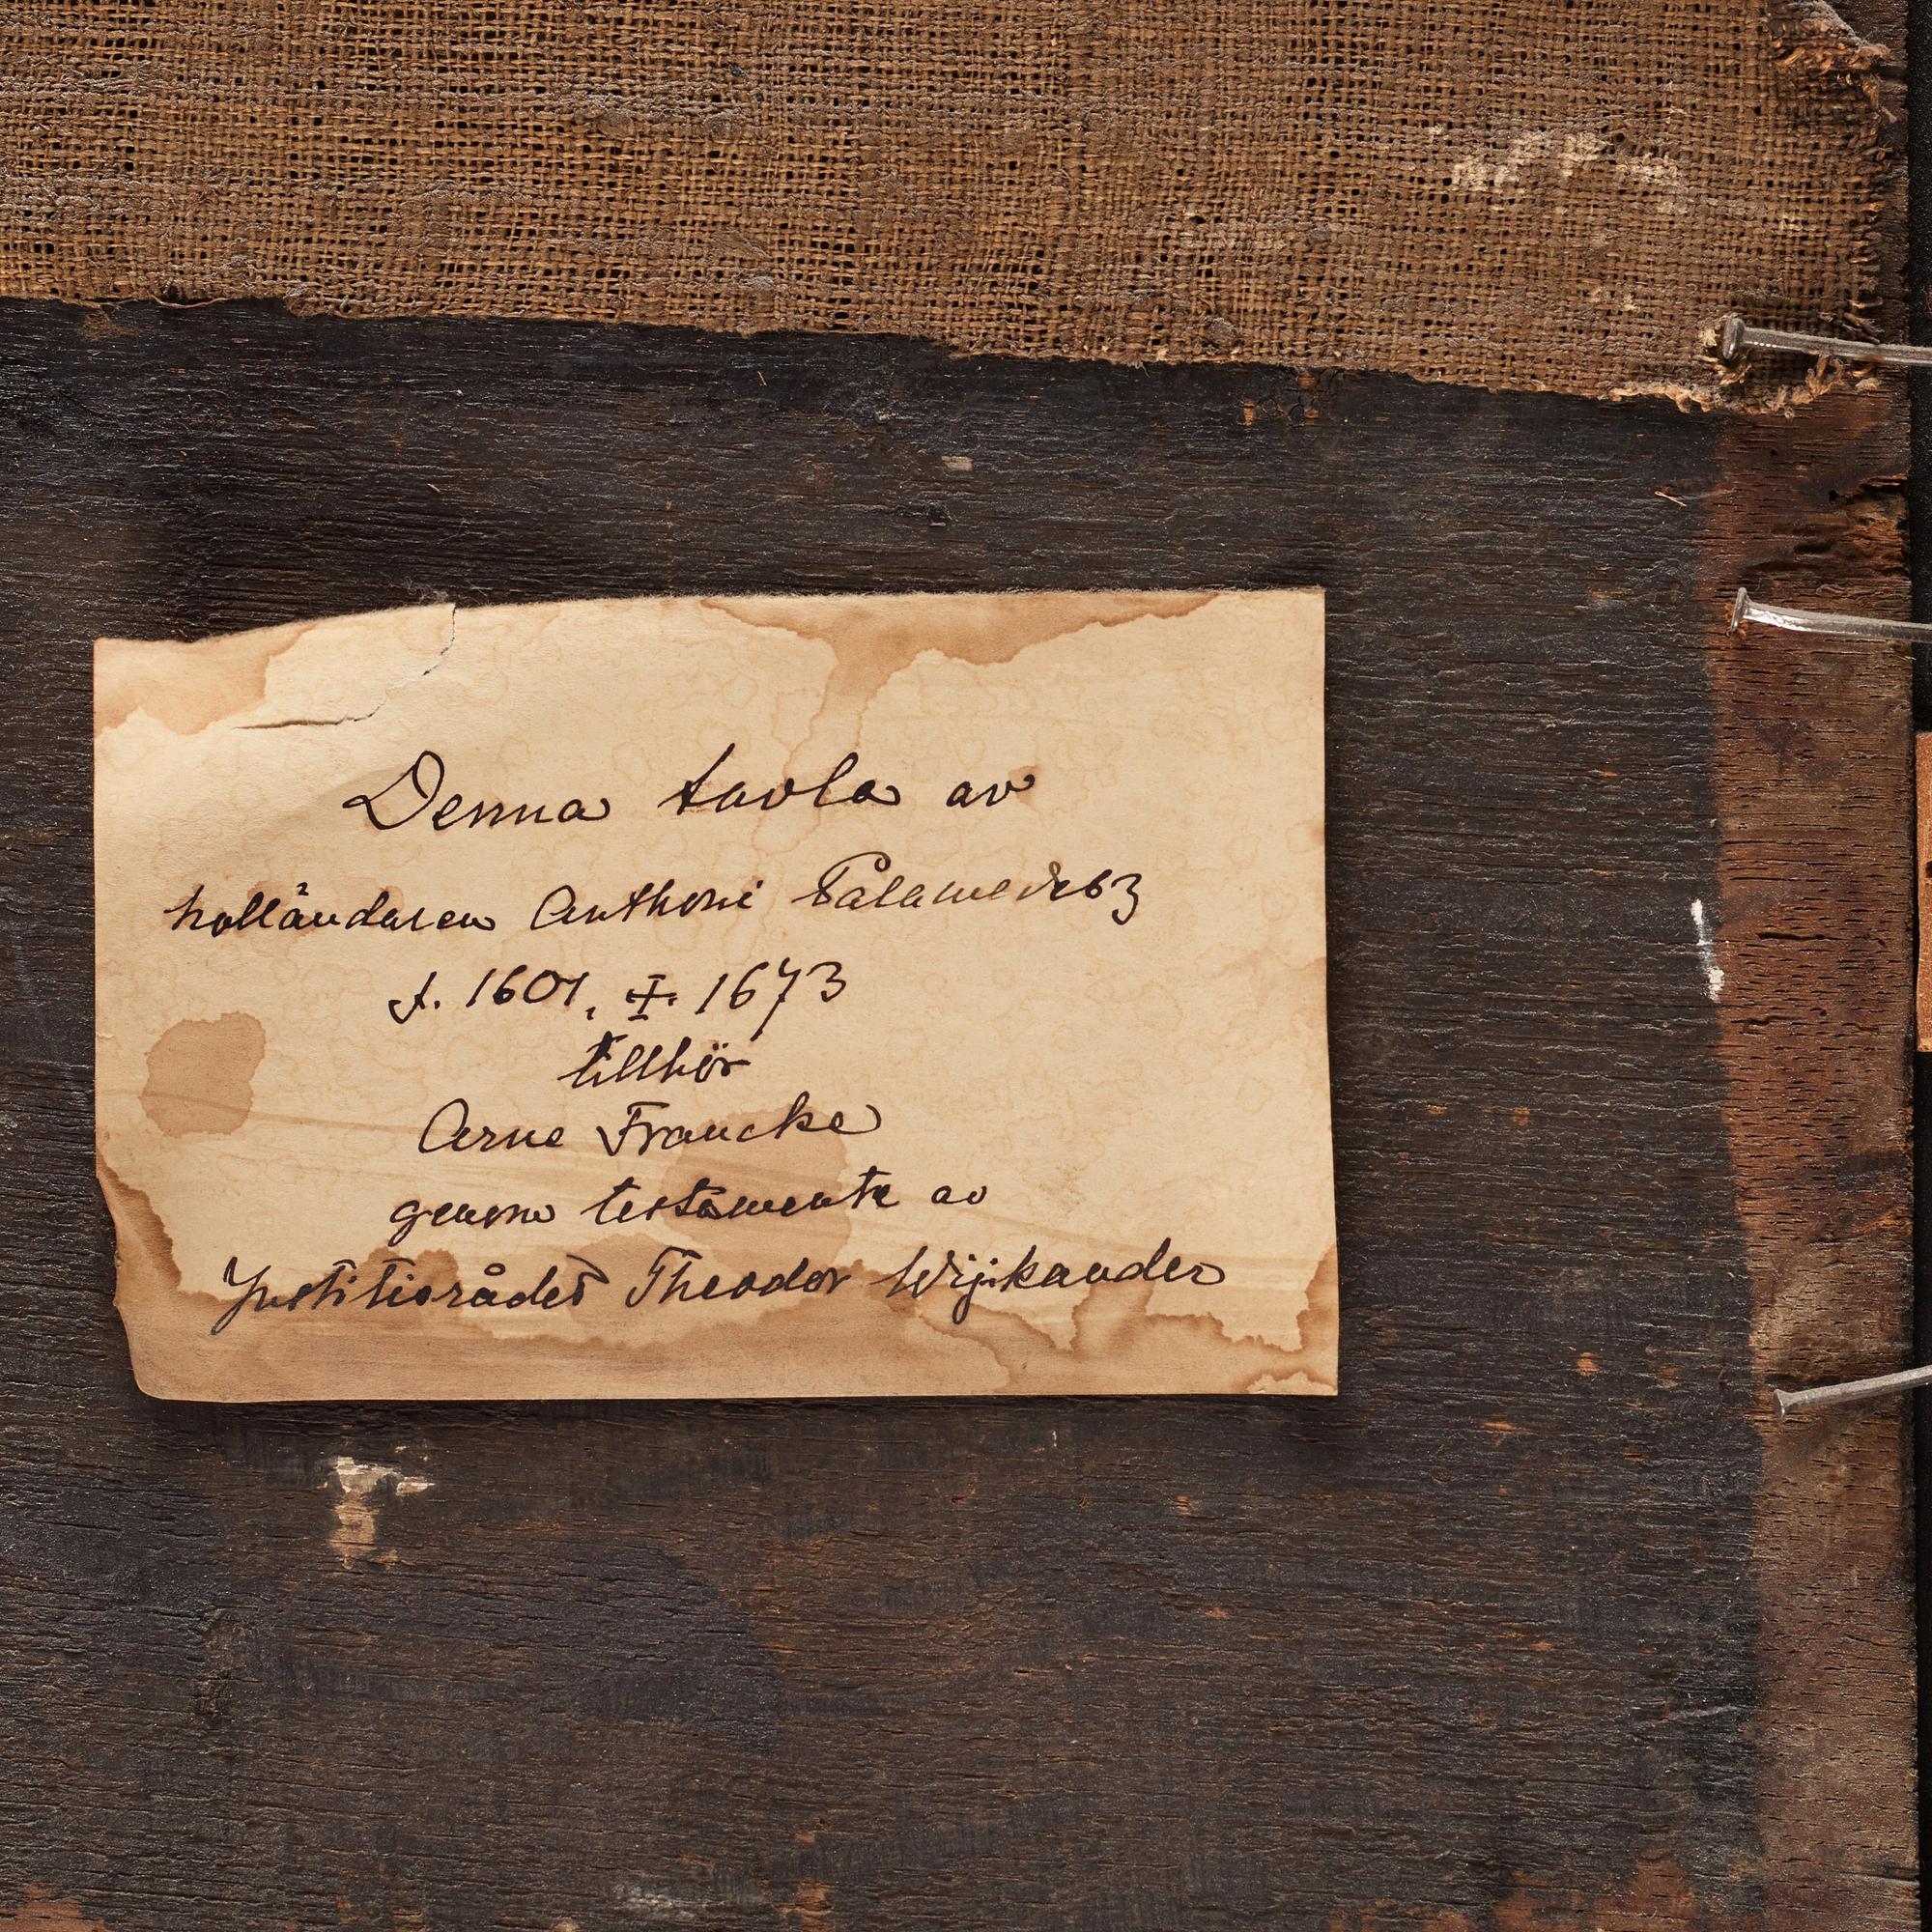 Denna tavla av
holländaren Anthoni Palamedesz
f. 1601, †. 1673
tillhör
Arne Francke
genom testamente av
Justitierådet Theodor Wijkander